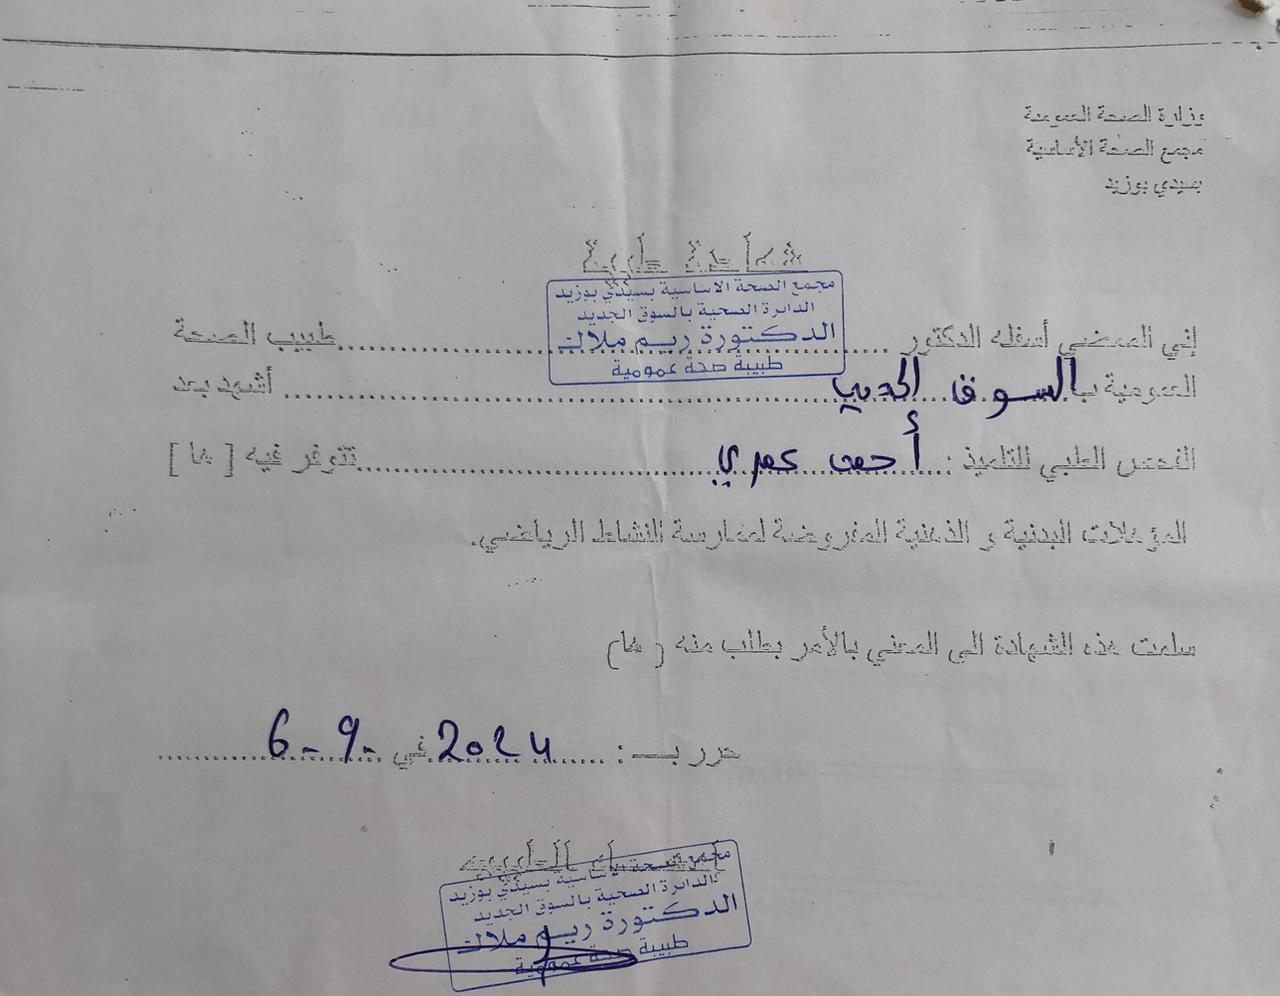 وزارة الصحة العمومية
مجمع الصحة الأساسية
بسيدي بوزيد
شهادة طبية
مجمع الصحة الاساسية بسيدي بوزيد
الدائرة الصحية بالسوق الجديد
الدكتورة ريم ملاك
طبيبة صحة عمومية
إني الممضي أسفله الدكتور ........ طبيب الصحة
العمومية بـ السوق الجديد ........ أشهد بعد
الفحص الطبي للتلميذ : أحمد عمري ........ تتوفر فيه [ ها ]
المؤهلات البدنية و الذهنية المفروضة لممارسة النشاط الرياضي.
سلمت هذه الشهادة الى المعني بالأمر بطلب منه ( ها)
حرر بـ : ........ في 6-9-2024
إمضاء الطبيب
مجمع الصحة الاساسية بسيدي بوزيد
الدائرة الصحية بالسوق الجديد
الدكتورة ريم ملاك
طبيبة صحة عمومية